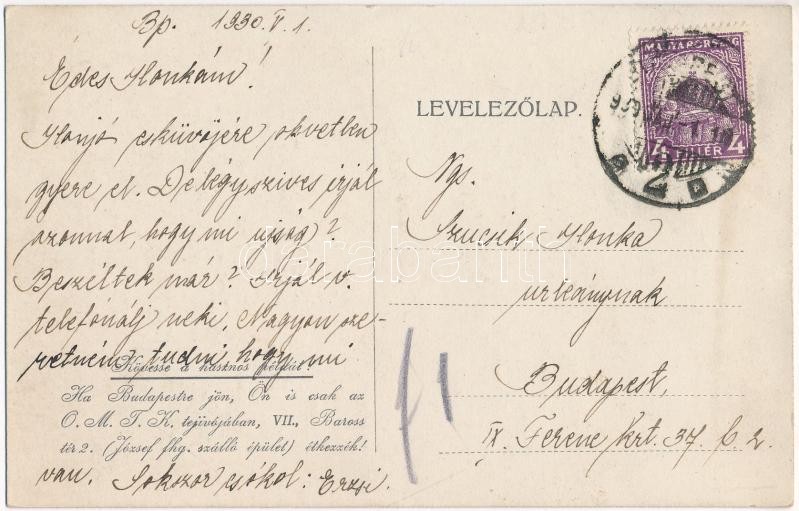 Bp. 1930. V. 1.
Édes Ilonkám!
Ilonjó esküvőjére okvetlen
gyere el. De légy szives irjál
azonnal, hogy mi ujság?
Beszéltek már? Irjál v.
telefónálj neki. Nagyon sze-
retném tudni, hogy mi
Kövesse a hasznos példát!
Ha Budapestre jön, Ön is csak az
O. M. T. K. tejivójában, VII., Baross
tér 2. (József fhg. szálló épület) étkezzék!
van. Sokszor csókol: Erzsi.
LEVELEZŐLAP.
MAGYARORSZÁG
4 FILLÉR 4
Ngs.
Szucsik Ilonka
urleánynak
Budapest,
IX. Ferenc krt. 37. f. 2.
darabanth